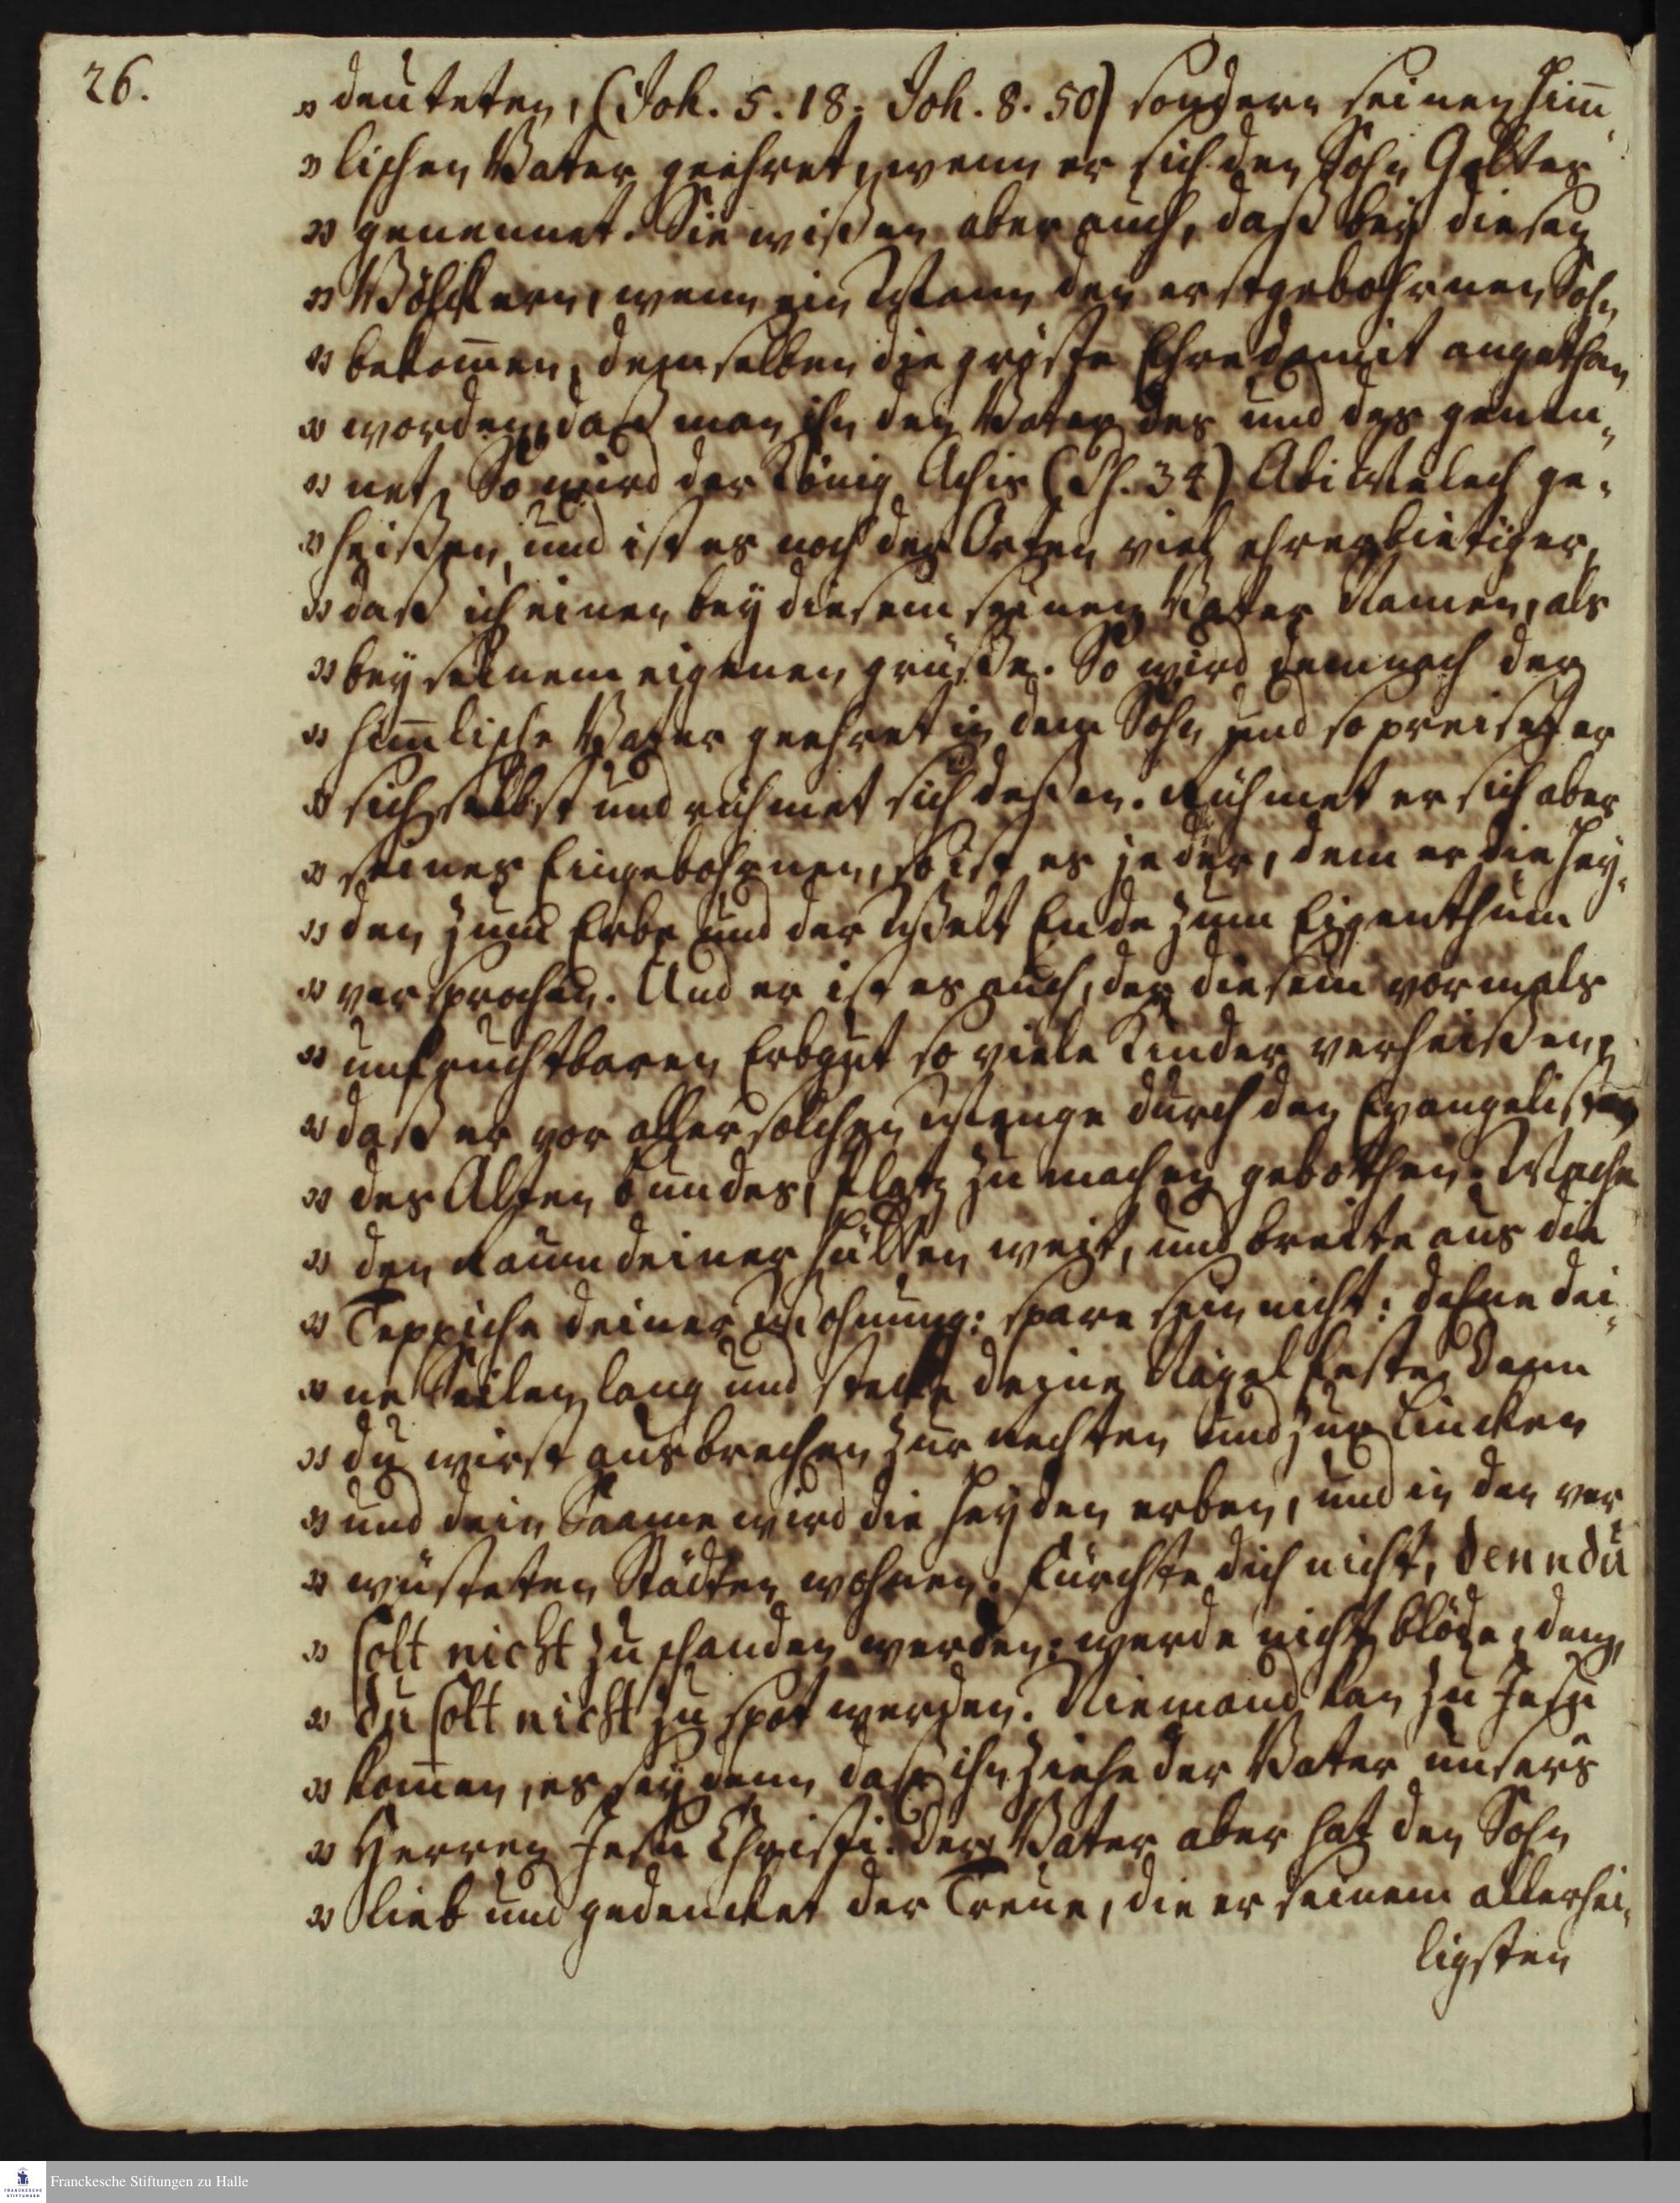 26.
» deuteten, (Joh. 5. 18. Joh. 8. 50) sondern seinen him̄-
» lischen Vater geehret, wenn er sich den Sohn Gottes
» genennet. Sie wißen aber auch, daß bey diesen
» Völckern, wenn ein Mann den erstgebohrnen Sohn
» bekom̄en, demselben die gröste Ehre damit angethan
» worden, daß man ihn den Vater des und des genen-
» net. So wird der König Achis (Ps. 34) Abi Melech ge-
» heißen, und ist es noch der Orten viel ehrerbietiger,
» daß ich einen bey diesem seinem Vater Namen, als
» bey seinem eigenen grüße. So wird demnach der
» him̄lische Vater geehret in dem Sohn und so preiset er
» sich selbst und rühmet sich deßen. Rühmet er sich aber
» seines Eingebohrnen, so ist es ja der, dem er die Hey-
» den zum Erbe und der Welt Ende zum Eigenthum
» versprochen. Und er ist es auch, der diesem vormals
» unfruchtbaren Erbgut so viele Kinder verheißen,
» daß er vor aller solchen Menge durch den Evangelisten
» des Alten Bundes, Platz zu machen gebothen: Mache
» den Raum deiner Hütten weit, und breite aus die
» Teppiche deiner Wohnung: spare sein nicht: dehne dei-
» ne Seilen lang und stecke deine Nägel feste, denn
» du wirst ausbrechen zur rechten und zur Lincken
» und dein Saame wird die Heyden erben, und in den ver-
» wüsteten Städten wohnen. Fürchte dich nicht, denn du
» solt nicht zu schanden werden: werde nicht blöde, denn
» du solt nicht zu spot werden. Niemand kan zu Jesu
» kom̄en, es sey denn daß ihn ziehe der Vater unsers
» Herren Jesu Christi. Der Vater aber hat den Sohn
» lieb und gedencket der Treue, die er seinem allerhei-
ligsten
Franckesche Stiftungen zu Halle